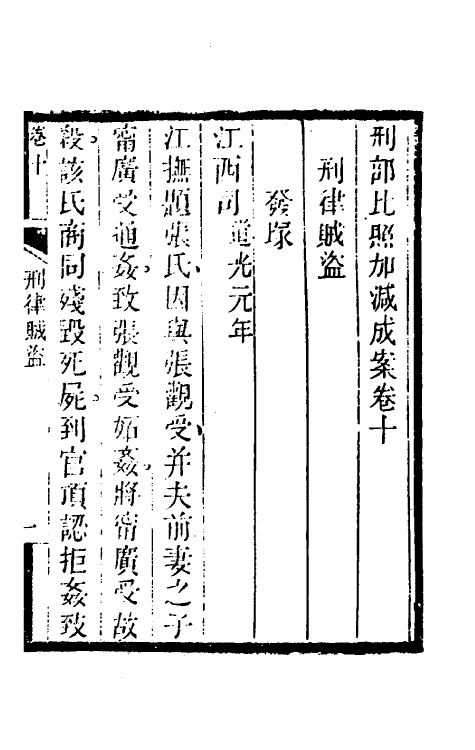 刑部比照加減成案卷十
刑律賊盜
發塚
江西司 道光元年
江撫題張氏因與張觀受并夫前妻之子
甯廣受通姦致張觀受妬姦將甯廣受故
殺該氏商同殘毀死屍到官頂認拒姦致
卷十
刑律賊盜
一